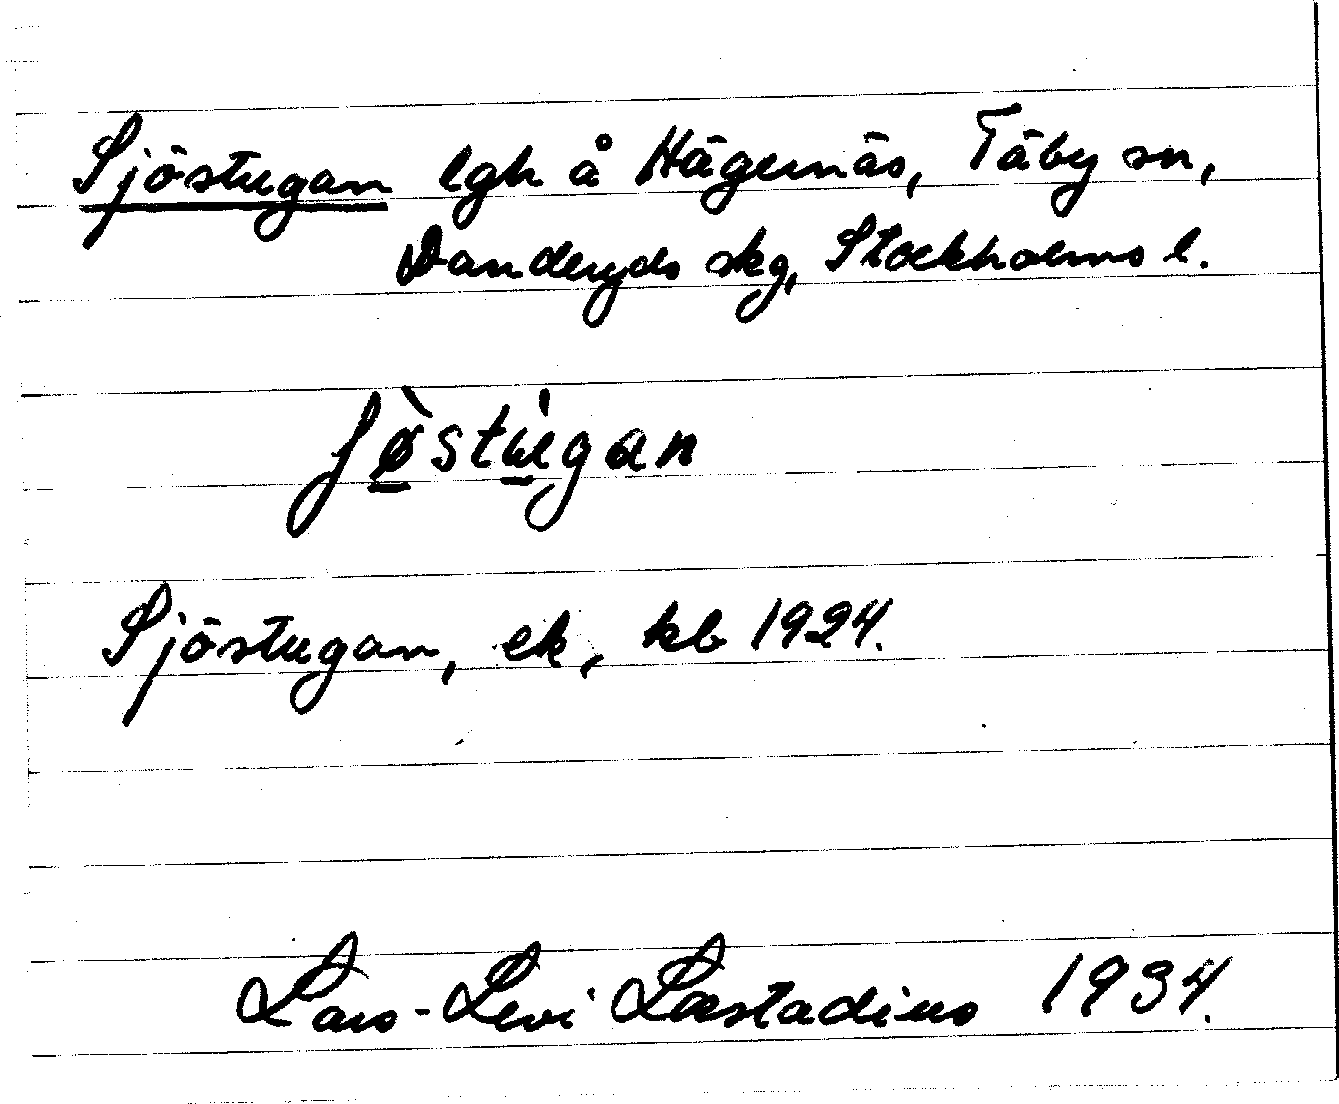 Sjöstugan lgh å Hägernäs, Täby sn,
Danderyds skg, Stockholms l.
ʃø̠̀stu̠̍gan
Sjöstugan, ek, kb 1924.
Lars-Levi Læstadius 1934.